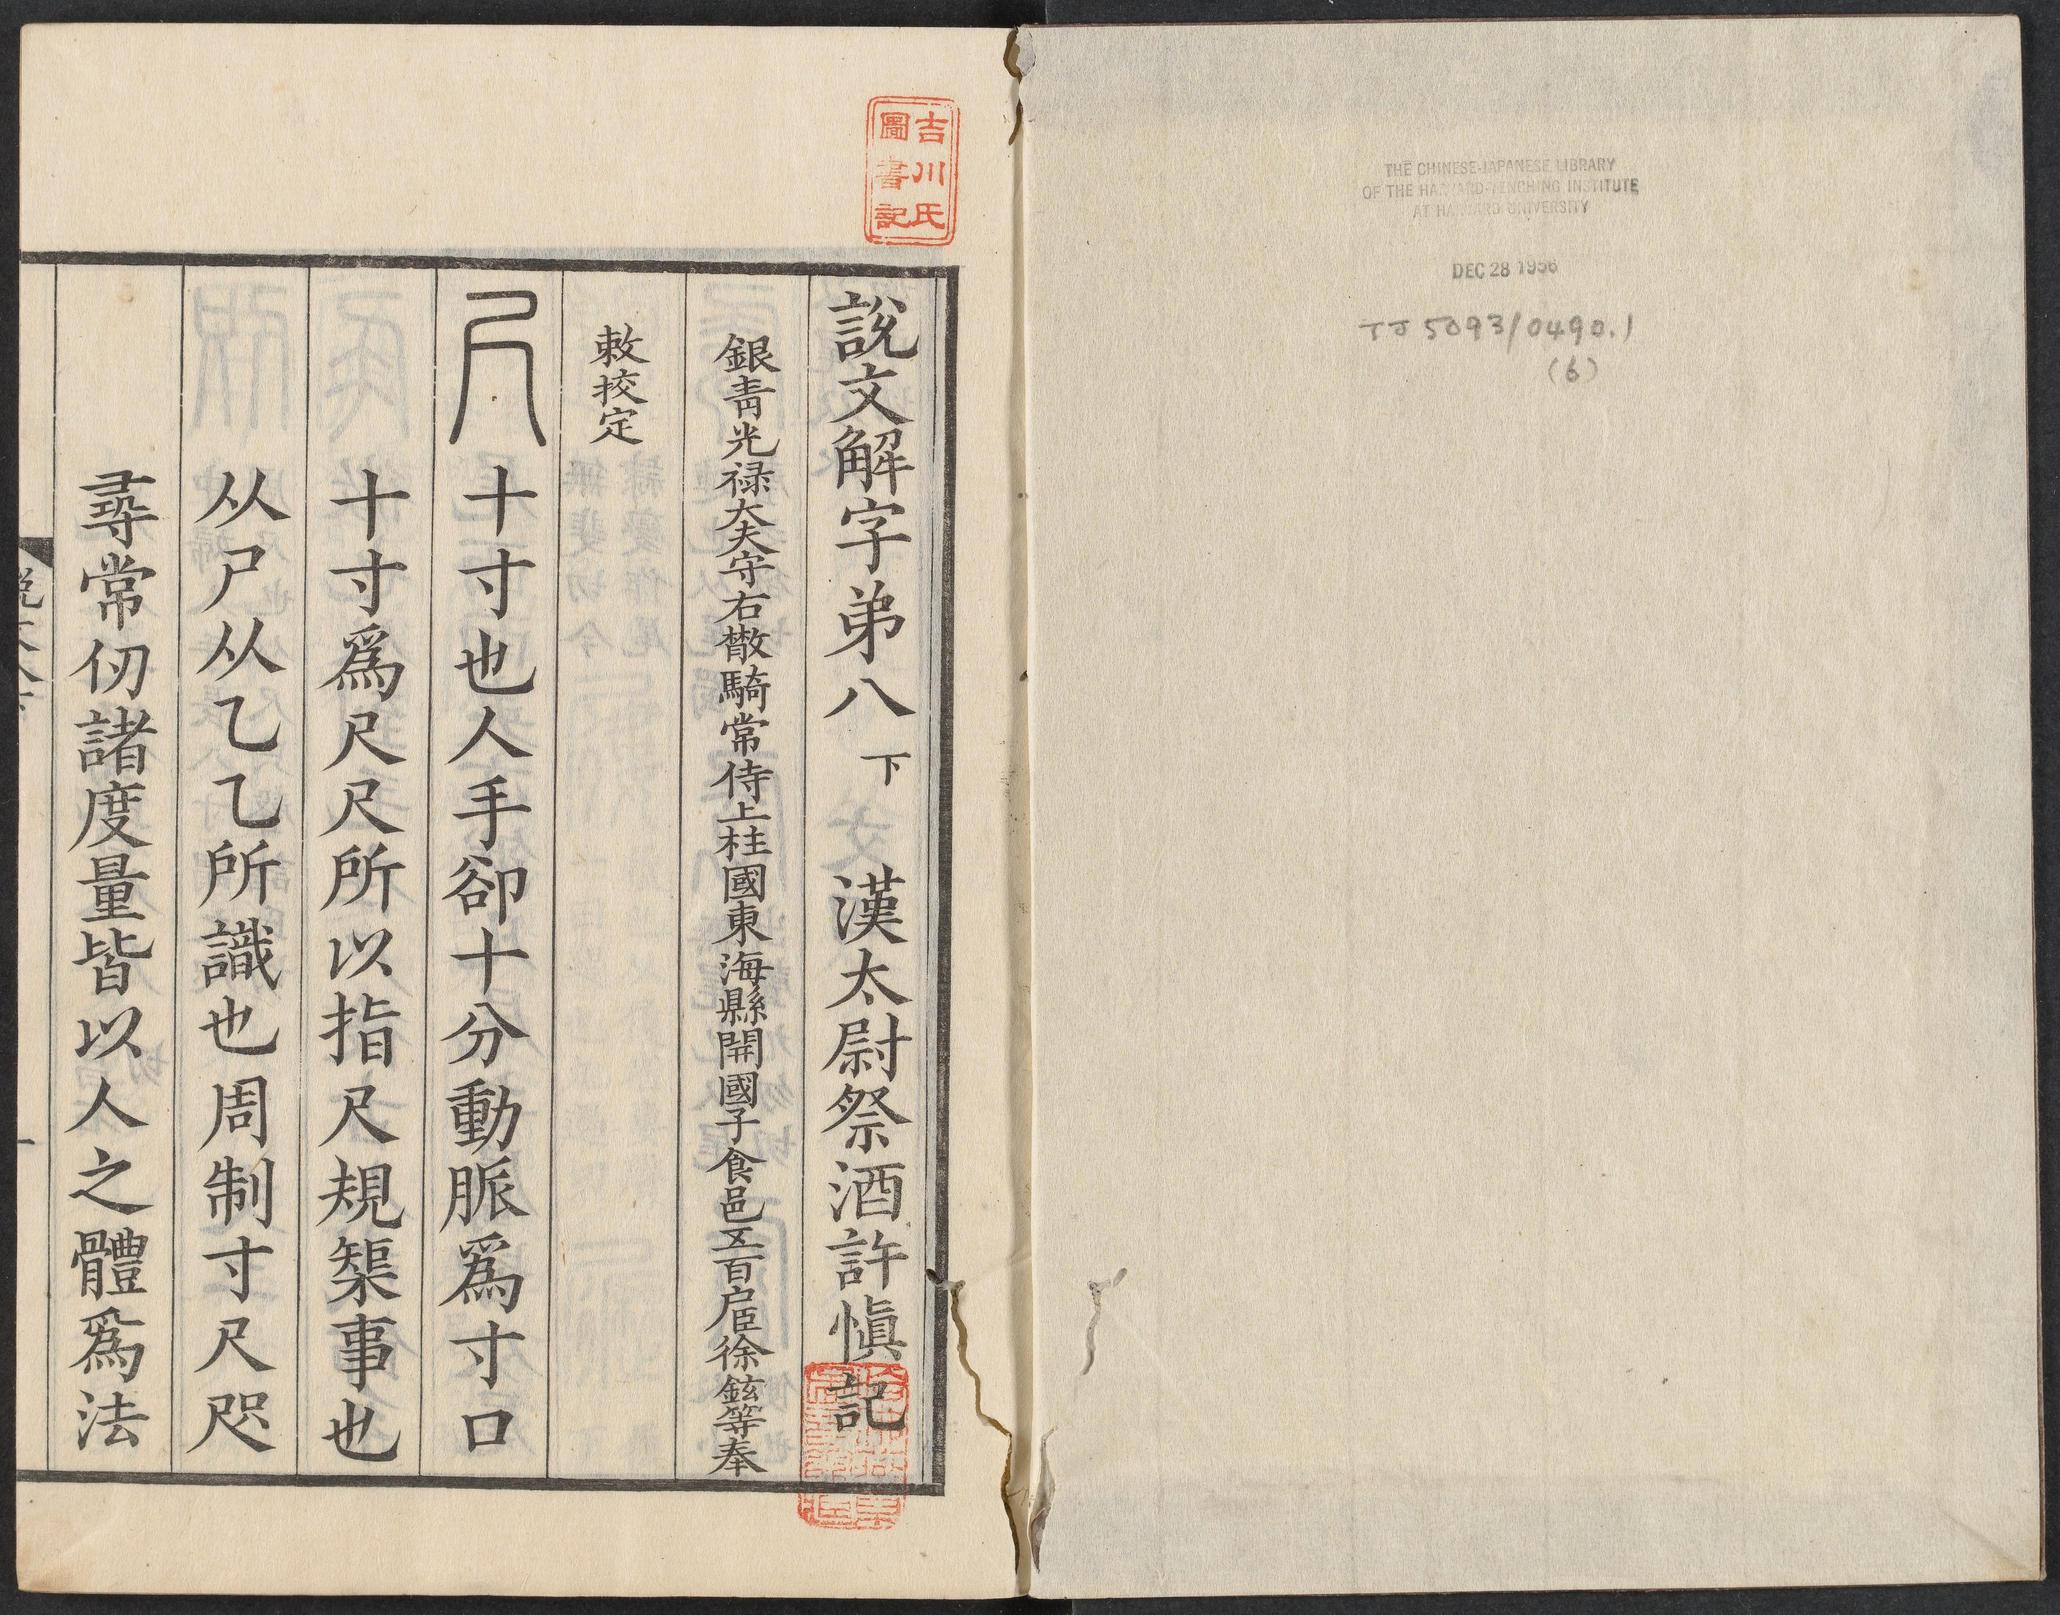 THE CHINESE-JAPANESE LIBRARY
OF THE HARVARD-YENCHING INSTITUTE
AT HARVARD UNIVERSITY
DEC 28 1956
TJ 5093/0490.1
(6)
吉川氏
圖書記
說文解字弟八下 漢太尉祭酒許慎記
銀青光禄大夫守右散騎常侍上柱國東海縣開國子食邑五百户臣徐鉉等奉
敕挍定
尺 十寸也人手卻十分動脈爲寸口
十寸爲尺尺所以指尺規榘事也
从尸从乙乙所識也周制寸尺咫
尋常仞諸度量皆以人之體爲法
一